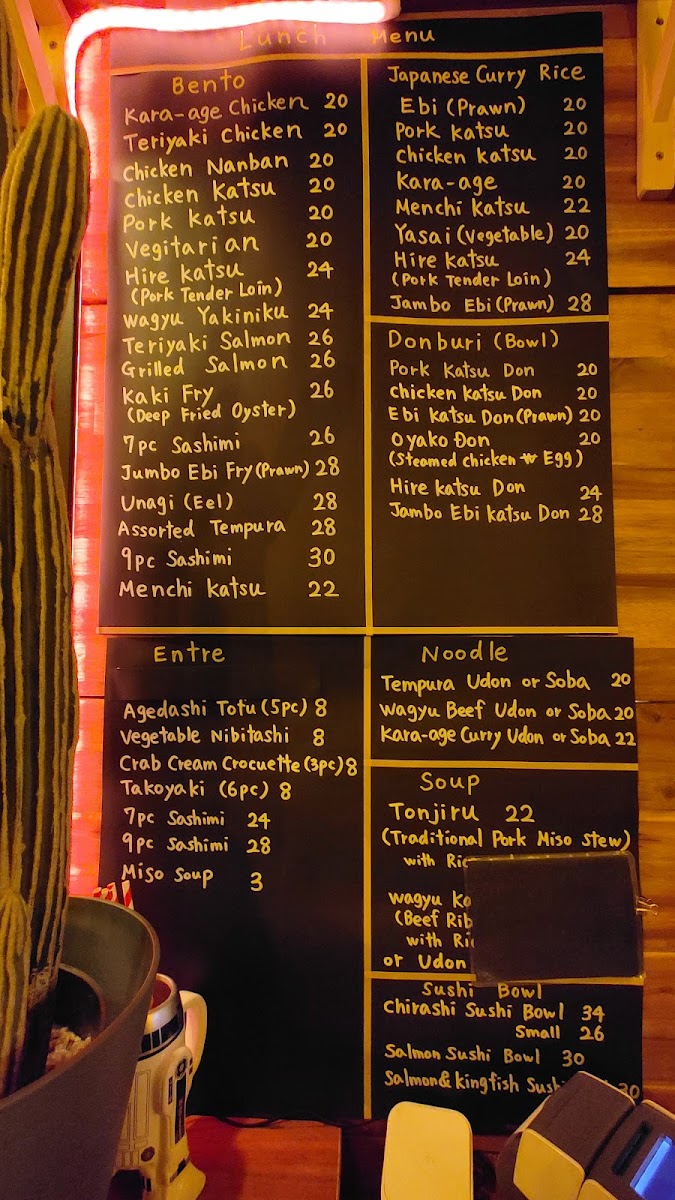 Lunch Menu
Bento
Kara-age Chicken 20
Teriyaki Chicken 20
Chicken Nanban 20
Chicken Katsu 20
Pork Katsu 20
Vegitarian 20
Hire Katsu 24
(Pork Tender Loin)
Wagyu Yakiniku 24
Teriyaki Salmon 26
Grilled Salmon 26
Kaki Fry 26
(Deep Fried Oyster)
7pc Sashimi 26
Jumbo Ebi Fry (Prawn) 28
Unagi (Eel) 28
Assorted Tempura 28
9pc Sashimi 30
Menchi Katsu 22
Japanese Curry Rice
Ebi (Prawn) 20
Pork Katsu 20
Chicken Katsu 20
Kara-age 20
Menchi Katsu 22
Yasai (Vegetable) 20
Hire Katsu 24
(Pork Tender Loin)
Jambo Ebi (Prawn) 28
Donburi (Bowl)
Pork Katsu Don 20
Chicken Katsu Don 20
Ebi Katsu Don (Prawn) 20
Oyako Don 20
(Steamed chicken w Egg)
Hire Katsu Don 24
Jambo Ebi Katsu Don 28
Entre
Agedashi Tofu (5pc) 8
Vegetable Nibitashi 8
Crab Cream Crocuette (3pc) 8
Takoyaki (6pc) 8
7pc Sashimi 24
9pc Sashimi 28
Miso Soup 3
Noodle
Tempura Udon or Soba 20
Wagyu Beef Udon or Soba 20
Kara-age Curry Udon or Soba 22
Soup
Tonjiru 22
(Traditional Pork Miso Stew)
with
Wagyu
(Beef Rib
with
or Udon
Sushi Bowl
Chirashi Sushi Bowl 34
Small 26
Salmon Sushi Bowl 30
Salmon & Kingfish Sushi 30